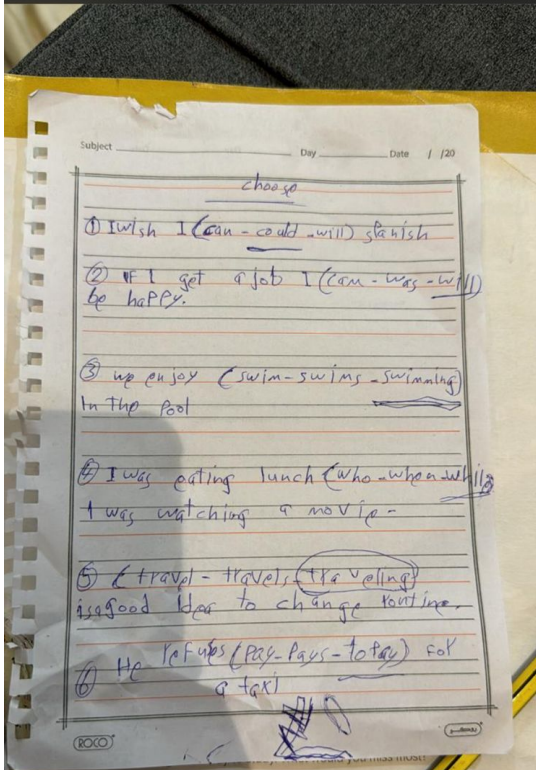 Subject Day Date / /20
choose
① I wish I (can - could - will) spanish
② if I get a job I (can - was - will)
be happy.
③ we enjoy (swim - swims - swimming)
In the Pool
④ I was eating lunch (who - when - while
I was watching a movie -
⑤ (travel - travels - traveling)
is a good Idea to change routine.
⑥ He refuses (pay - Pays - to Pay) for
a taxi
ROCO
would you miss most?